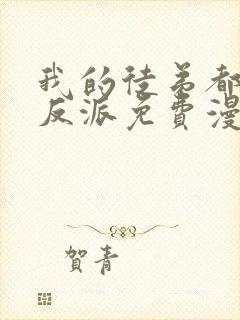 我的徒弟都
反派免費漫
賀青